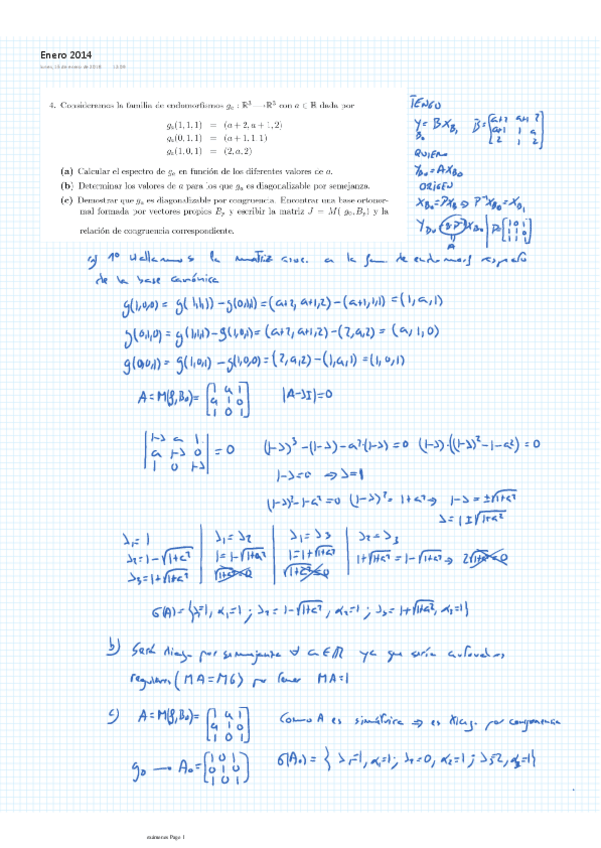 Enero 2014
4. Consideremos la familia de endomorfismos gₐ : ℝ³ → ℝ³ con a ∈ ℝ dada por
gₐ(1, 1, 1) = (a + 2, a + 1, 2)
gₐ(0, 1, 1) = (a + 1, 1, 1)
gₐ(1, 0, 1) = (2, a, 2)
(a) Calcular el espectro de gₐ en función de los diferentes valores de a.
(b) Determinar los valores de a para los que gₐ es diagonalizable por semejanza.
(c) Demostrar que gₐ es diagonalizable por congruencia. Encontrar una base ortonormal formada por vectores propios Bₚ y escribir la matriz J = M( g₀, Bₚ) y la
relación de congruencia correspondiente.
TENGO
Y = B X_B₁ B = [a+2 a+1 2
B₀ a+1 1 a
2 1 2]
QUIERO
Y_B₀ = A X_B₀
ORIGEN
X_B₀ = P X_B₁ ⇒ P⁻¹ X_B₀ = X_B₁
Y_B₀ = (B P⁻¹) X_B₀ P = [1 0 1
A 1 1 0
1 1 1]
a) 1º Hallamos la matriz asoc. a la fam de endomorf respecto
de la base canónica
g(1,0,0) = g(1,1,1) - g(0,1,1) = (a+2, a+1, 2) - (a+1, 1, 1) = (1, a, 1)
g(0,1,0) = g(1,1,1) - g(1,0,1) = (a+2, a+1, 2) - (2, a, 2) = (a, 1, 0)
g(0,0,1) = g(1,0,1) - g(1,0,0) = (2, a, 2) - (1, a, 1) = (1, 0, 1)
A = M(g, B₀) = [1 a 1 |A-λI| = 0
a 1 0
1 0 1]
|1-λ a 1
a 1-λ 0
1 0 1-λ| = 0 (1-λ)³ - (1-λ) - a²(1-λ) = 0 (1-λ)·((1-λ)² - 1 - a²) = 0
1-λ = 0 ⇒ λ = 1
(1-λ)² - 1 - a² = 0 (1-λ)² = 1+a² ⇒ 1-λ = ±√1+a²
λ = 1 ± √1+a²
λ₁ = 1 | λ₁ = λ₂ | λ₁ = λ₃ | λ₂ = λ₃
λ₂ = 1 - √1+a² | 1 = 1 - √1+a² | 1 = 1 + √1+a² | 1 + √1+a² = 1 - √1+a² ⇒ 2√1+a² = 0
λ₃ = 1 + √1+a² | √1+a² = 0 | √1+a² = 0
σ(A) = {λ₁=1, α₁=1 ; λ₂ = 1-√1+a², α₂=1 ; λ₃ = 1+√1+a², α₃=1}
b) Será diag. por semejanza ∀ a ∈ ℝ ya que sería autovalores
regulares (MA = MG) por tener MA=1
c) A = M(g, B₀) = [1 a 1 Como A es simétrica ⇒ es diag. por congruencia
a 1 0
1 0 1]
g₀ → A₀ = [1 0 1 σ(A₀) = { λ₁=1, α₁=1 ; λ₂=0, α₂=1 ; λ₃=2, α₃=1}
0 1 0
1 0 1]